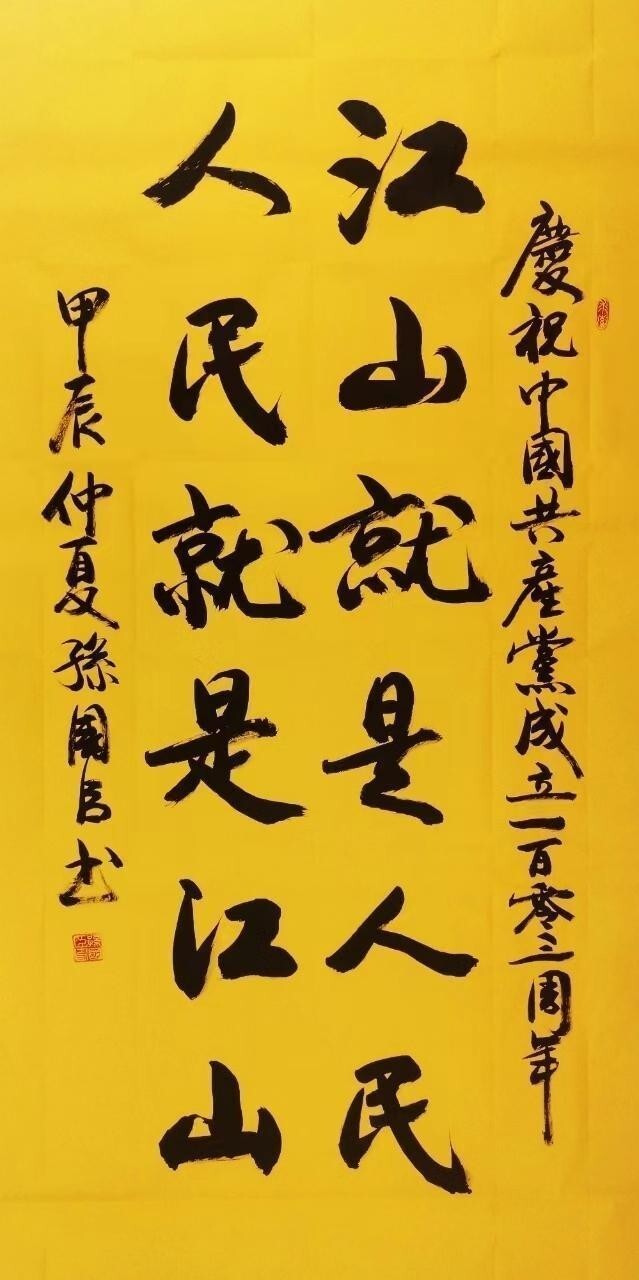 慶祝中國共產黨成立一百零三周年
江山就是人民
人民就是江山
甲辰仲夏孫國良书